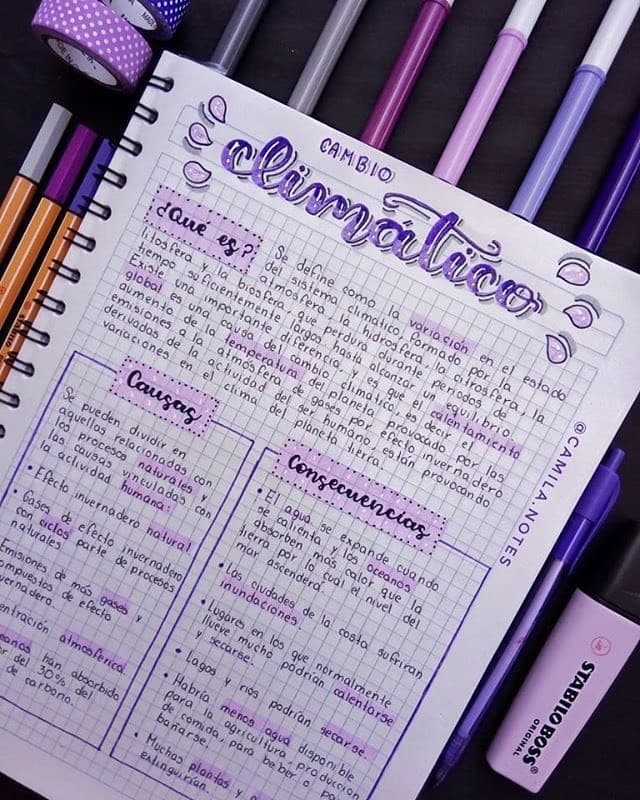 CAMBIO
climático
¿Qué es?
Se define como la variación en el estado
del sistema climatico, formado por la
atmosfera, la hidrosfera, la citrosfera, la
litosfera y la biosfera, que perdura durante periodos de
tiempo suficientemente largos hasta alcanzar un equilibrio.
Existe una importante diferencia, y es que el calentamiento
global es una causa del cambio climatico, es decir el
aumento de la temperatura del planeta provocado por las
emisiones a la atmosfera de gases por efecto invernadero
derivadas de la actividad del ser humano, están provocando
variaciones en el clima del planeta tierra.
Causas
Se pueden dividir en
aquellas relacionadas con
los procesos naturales y
las causas vinculadas con
la actividad humana:
• Efecto invernadero natural
• Gases de efecto invernadero
con ciclos parte de procesos
naturales
Emisiones de más gases y
compuestos de efecto
invernadero.
atmosférica
han absorbido
del 30% del
de carbono.
Consecuencias
• El agua se expande cuando
se calienta y los oceanos
absorben más calor que la
tierra por lo cual el nivel del
mar ascenderá.
• Las ciudades de la costa sufriran
inundaciones.
• Lugares en los que normalmente
llueve mucho podrian calentarse
y secarse.
• Lagos y rios podrían secarse.
• Habría menos agua disponible
para la agricultura, producción
de comida, para beber o para
bañarse.
• Muchas plantas y
extinguirian.
@CAMILA.NOTES
STABILO BOSS
ORIGINAL